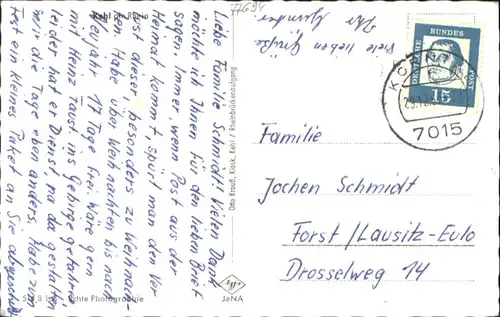 Kehl am Rhein
Liebe Familie Schmidt! Vielen Dank
möchte ich Ihnen für den lieben Brief
sagen. immer, wenn Post aus der
Heimat kommt, spürt man den Ver
ist dieser besonders zu Weihnach-
ten. Habe über Weihnachten bis nach
Neujahr 17 Tage frei. Wäre gern
mit Heinz Faust ins Gebirge gefahren
leider hat er Dienst na da gestalten
wir die Tage eben anders. Habe zum
Fest ein kleines Paket an Sie
viele liebe Grüße
Ihr Günter
77694
Otto Krauß, Kiosk, Kehl / Rheinbrückenaufgang
JeNA
Echte Photographie
DEUTSCHE BUNDESPOST
15
7015
Familie
Jochen Schmidt
Forst/Lausitz-Eulo
Drosselweg 14